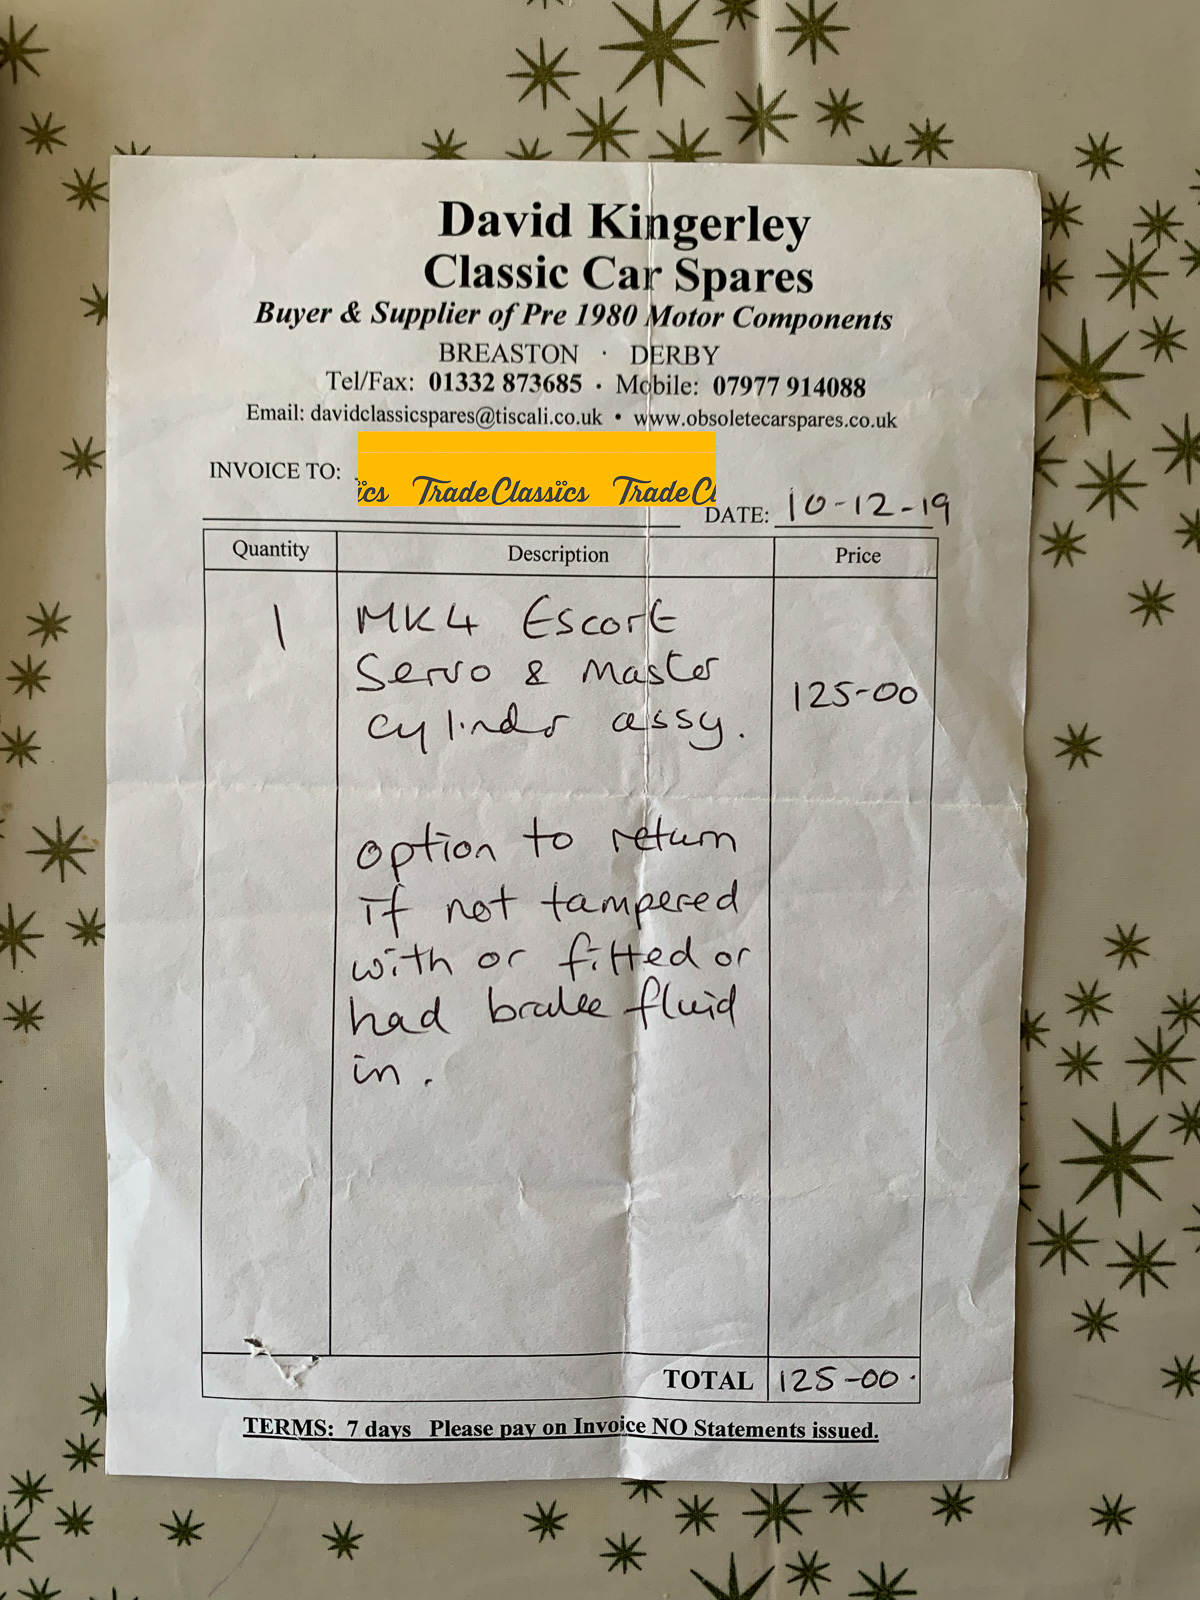 David Kingerley
Classic Car Spares
Buyer & Supplier of Pre 1980 Motor Components
BREASTON · DERBY
Tel/Fax: 01332 873685 · Mobile: 07977 914088
Email: davidclassicspares@tiscali.co.uk • www.obsoletecarspares.co.uk
INVOICE TO:
ics TradeClassics TradeCl
DATE: 10-12-19
Quantity Description Price
1 MK4 Escort
Servo & Master
cylinder assy. 125-00
option to return
if not tampered
with or fitted or
had brake fluid
in.
TOTAL 125-00.
TERMS: 7 days Please pay on Invoice NO Statements issued.